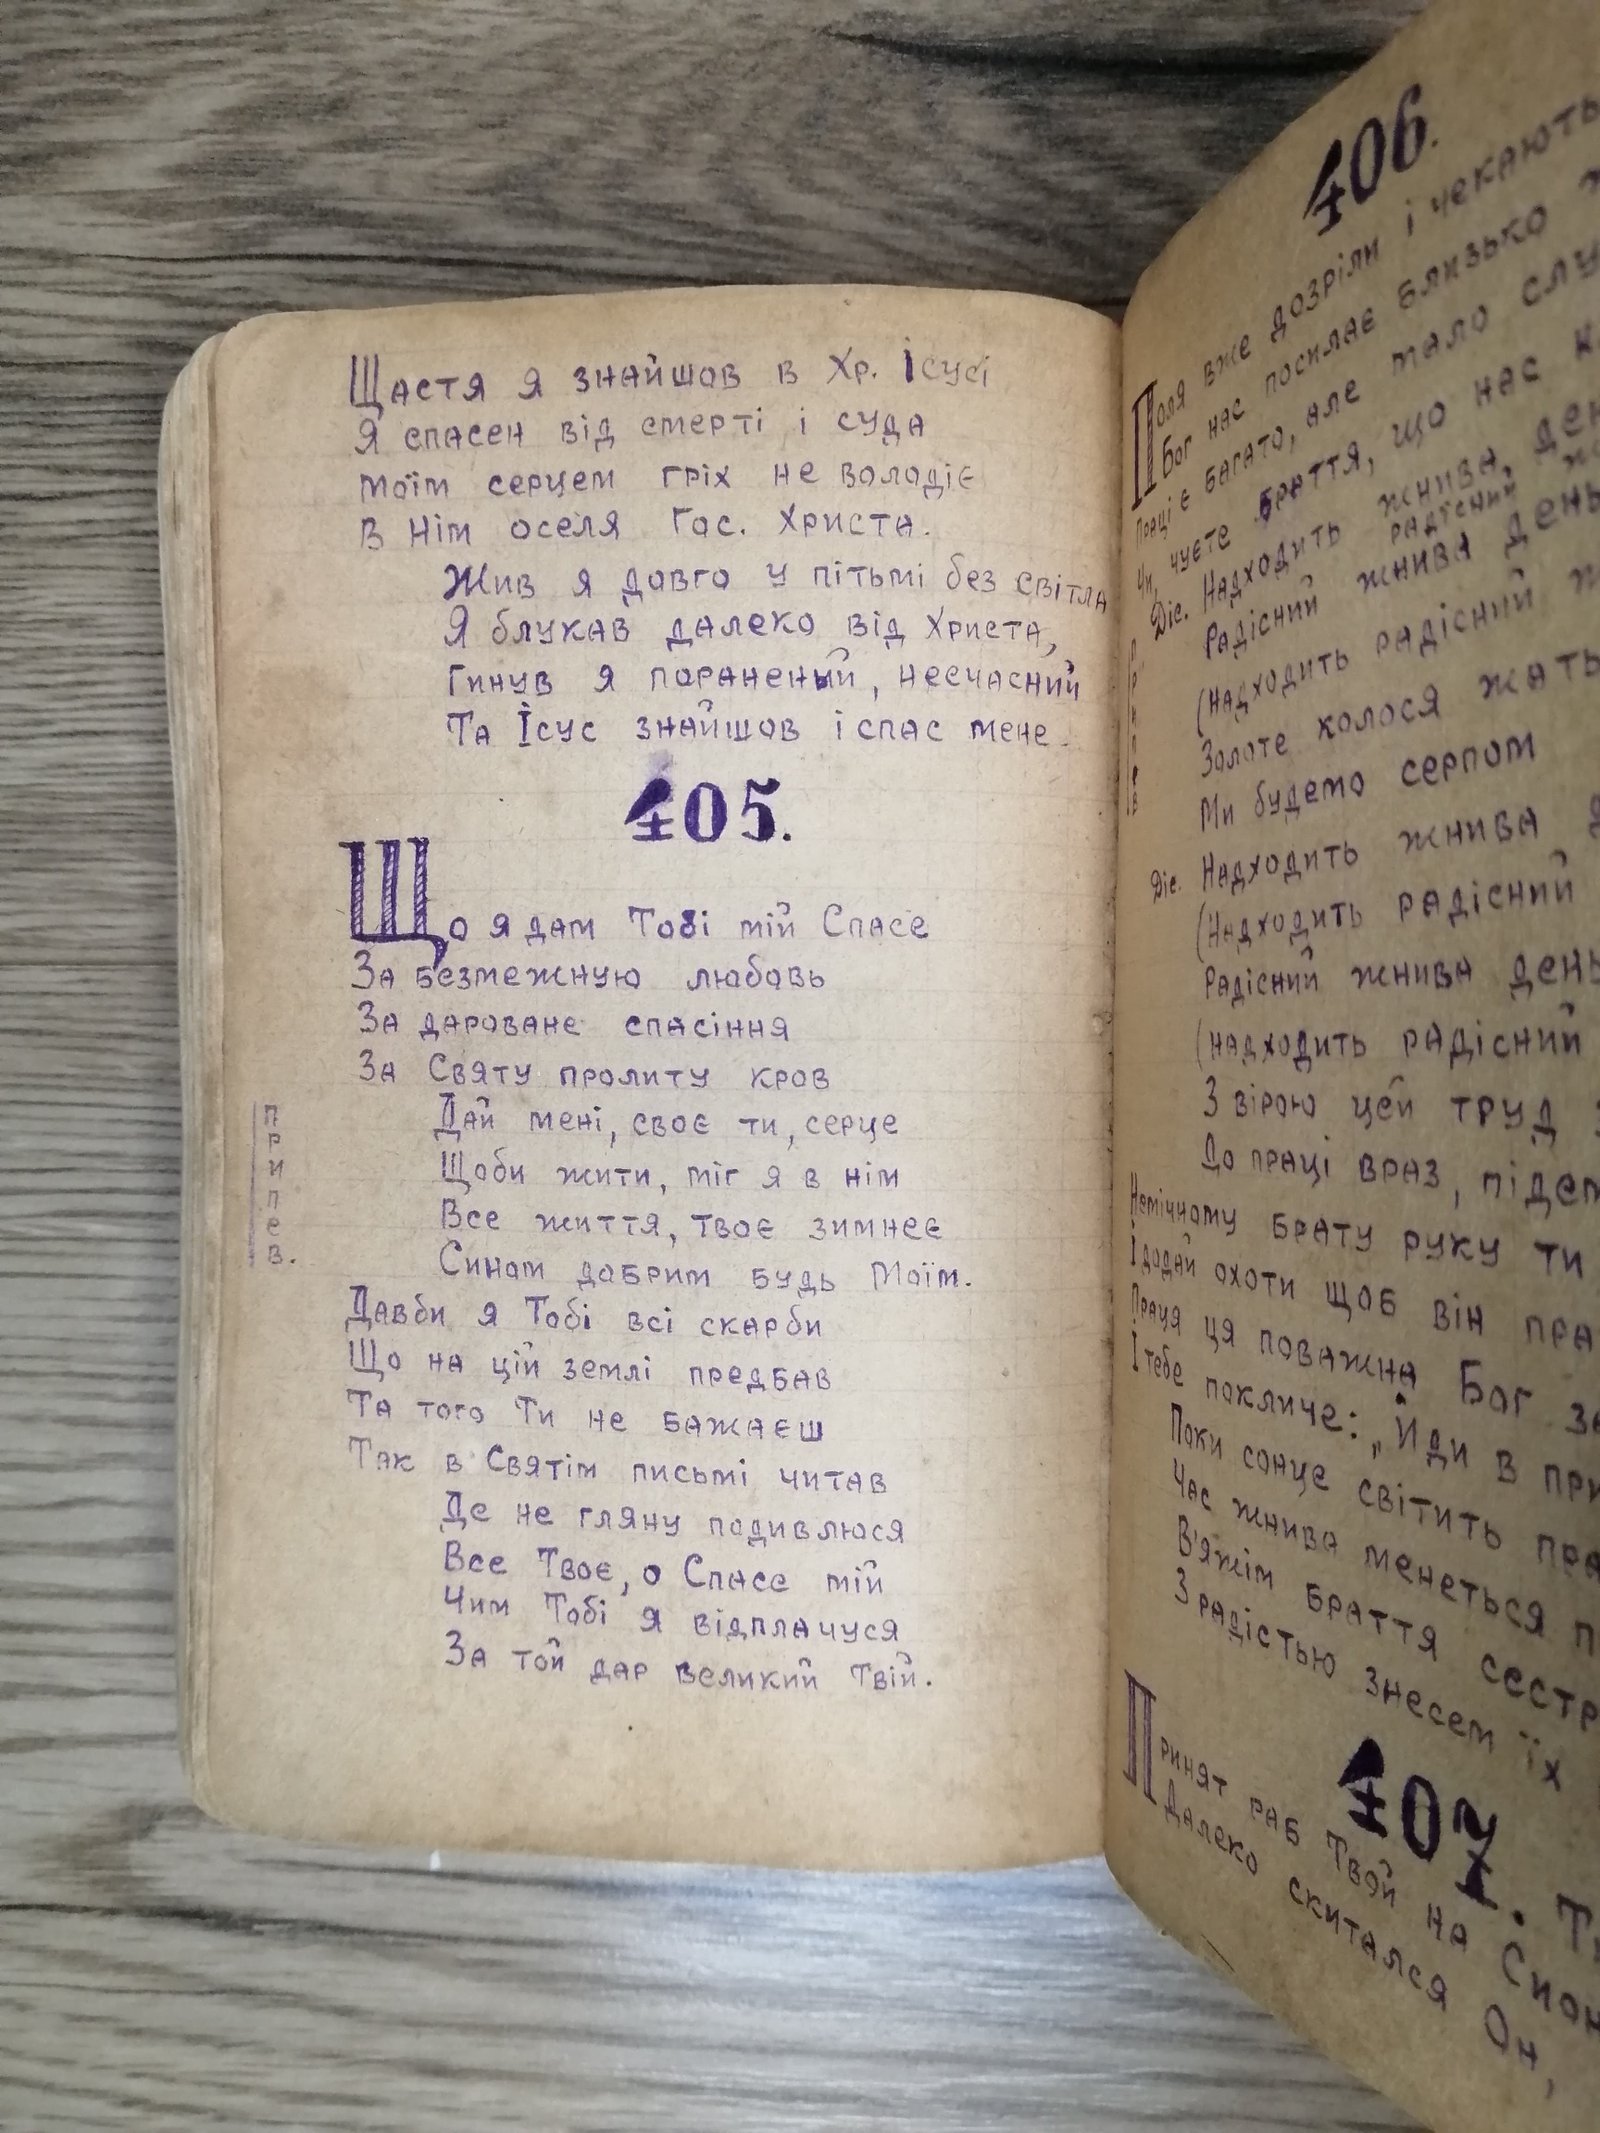 Щастя я знайшов в Хр. Ісусі
Я спасен від смерті і суда
Моїм серцем гріх не володіє
В нім оселя Гос. Христа.
Жив я довго у пітьмі без світла
Я блукав далеко від Христа,
Гинув я поранений, несчасний
Та Ісус знайшов і спас мене.
405.
Що я дам Тобі мій Спасе
За безмежную любовь
За дароване спасіння
За Святу пролиту кров
Припев.
Дай мені, своє ти, серце
Щоби жити, міг я в нім
Все життя, твоє зимнеє
Сином добрим будь Моїм.
Давби я Тобі всі скарби
Що на цій землі предбав
Та того Ти не бажаєш
Так в Святім письмі читав
Де не гляну подивлюся
Все Твоє, о Спасе мій
Чим Тобі я відплачуся
За той дар великий Твій.
406.
Поля вже дозріли і чекають
Бог нас посилає близько
Праці є багато, але мало
Чи, чуєте браття, що нас
Діс. Надходить жнива, день
радісний
Радісний жнива день
(Надходить радісний
Припев
Золоте колося жать
Ми будемо серпом
Діс. Надходить жнива
(Надходить радісний
Радісний жнива день
(надходить радісний
З вірою цей труд
До праці враз, підем
Немічному брату руку ти
І додай охоти щоб він
Праця ця поважна Бог
І тебе покличе: „Йди в
Поки сонце світить
Час жнива менеться
В'яжім браття
З радістью знесем їх
407.
Принят раб Твой на
Далеко скитался Он,